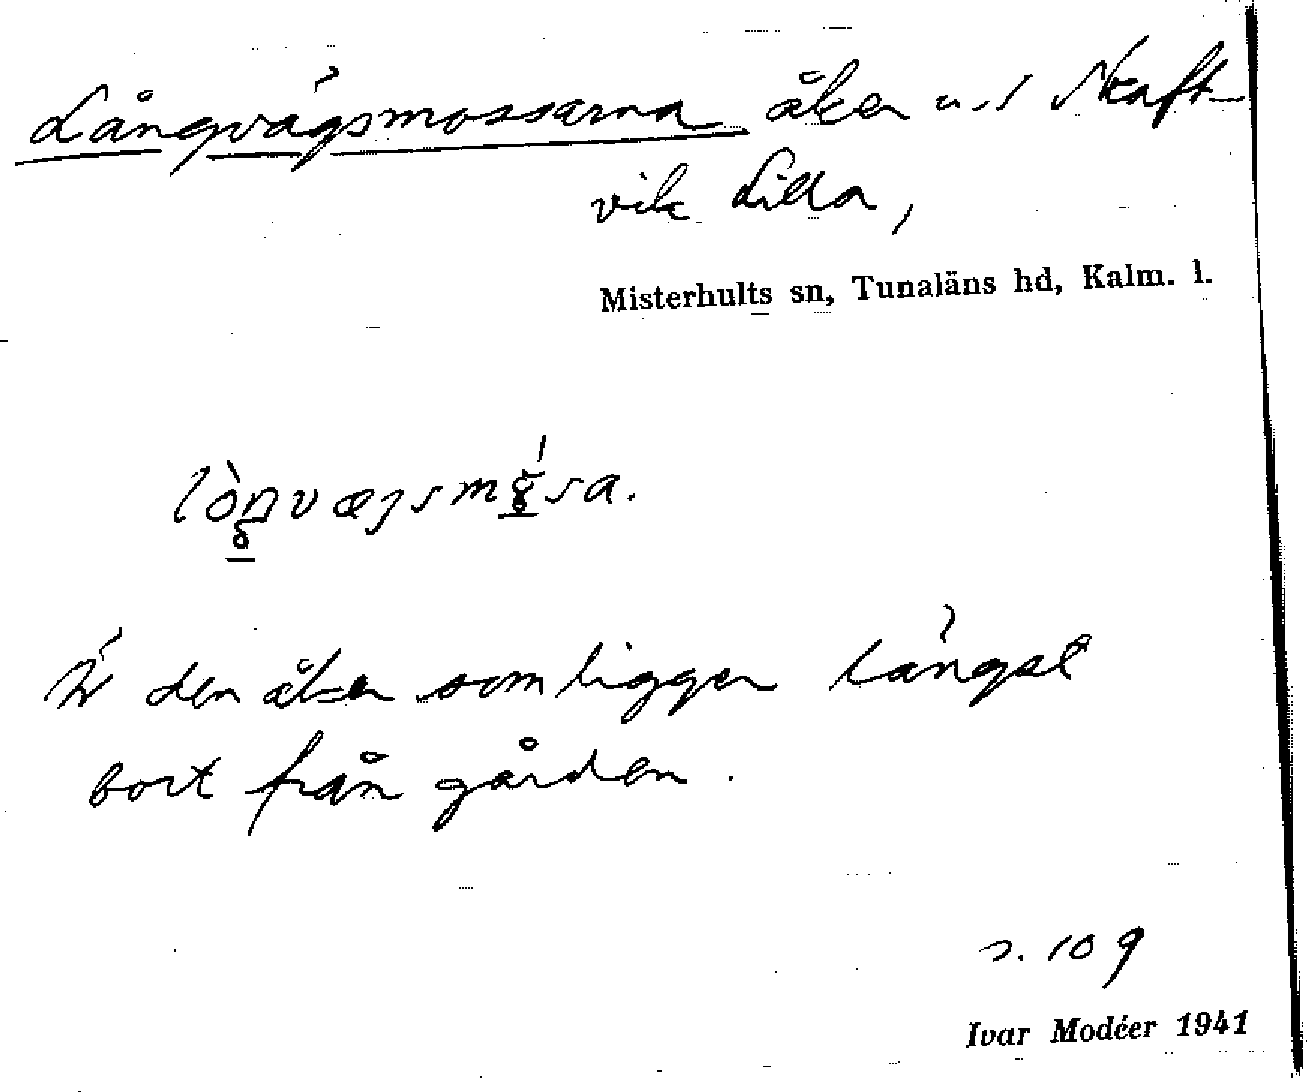 Långvägsmossarna åker u. / Skaft-
vik Lilla,
Misterhults sn, Tunaläns hd, Kalm. l.
Är den åker som ligger längst
bort från gården.
s. 109
Ivar Modéer 1941